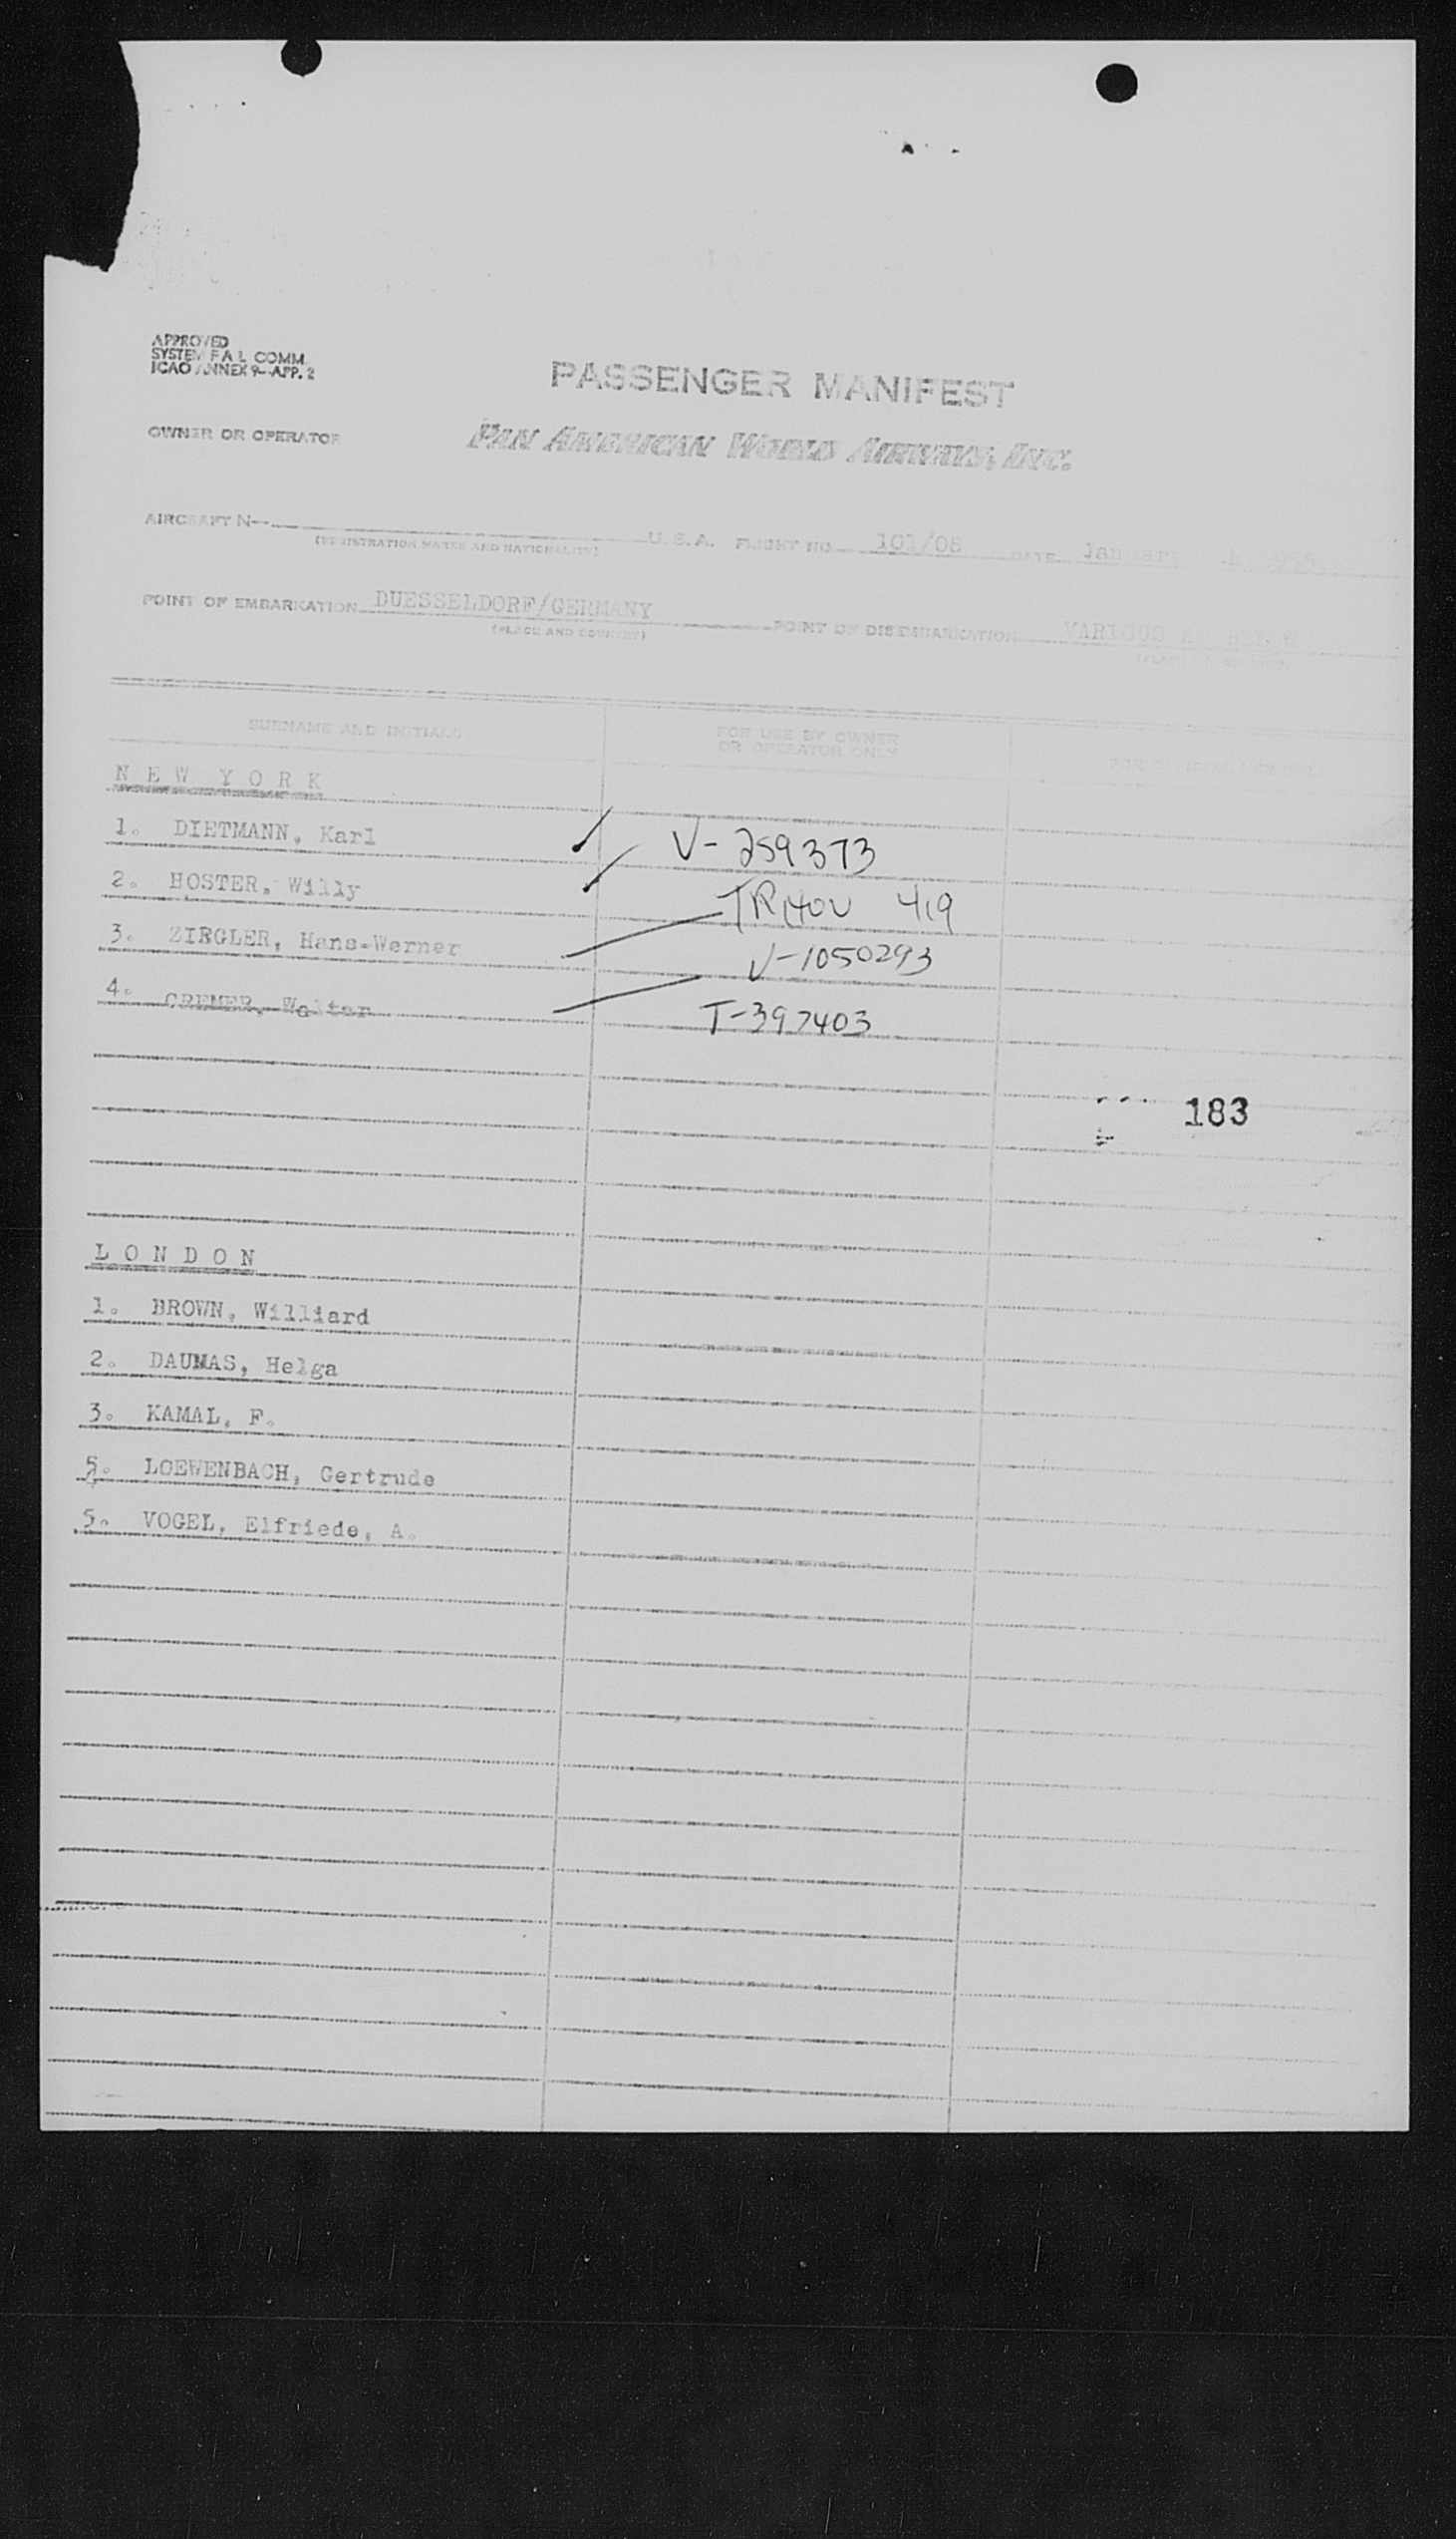 APPROVED
SYSTEM F A L COMM
ICAO ANNEX 9—APP. 2
PASSENGER MANIFEST
OWNER OR OPERATOR
PAN AMERICAN WORLD AIRWAYS, INC.
AIRCRAFT N— U. S. A. FLIGHT NO. 101/08 DATE January
(REGISTRATION MARKS AND NATIONALITY)
POINT OF EMBARKATION DUESSELDORF/GERMANY POINT OF DISEMBARKATION VARIOUS
(PLACE AND COUNTRY)
SURNAME AND INITIALS FOR USE BY OWNER
OR OPERATOR ONLY
N E W Y O R K
1. DIETMANN, Karl V-259373
2. HOSTER, Willy 419
3. ZIEGLER, Hans-Werner V-1050293
4. CREMER, Walter T-397403
183
L O N D O N
1. BROWN, Williard
2. DAUMAS, Helga
3. KAMAL, F.
5. LOEWENBACH, Gertrude
5. VOGEL, Elfriede, A.